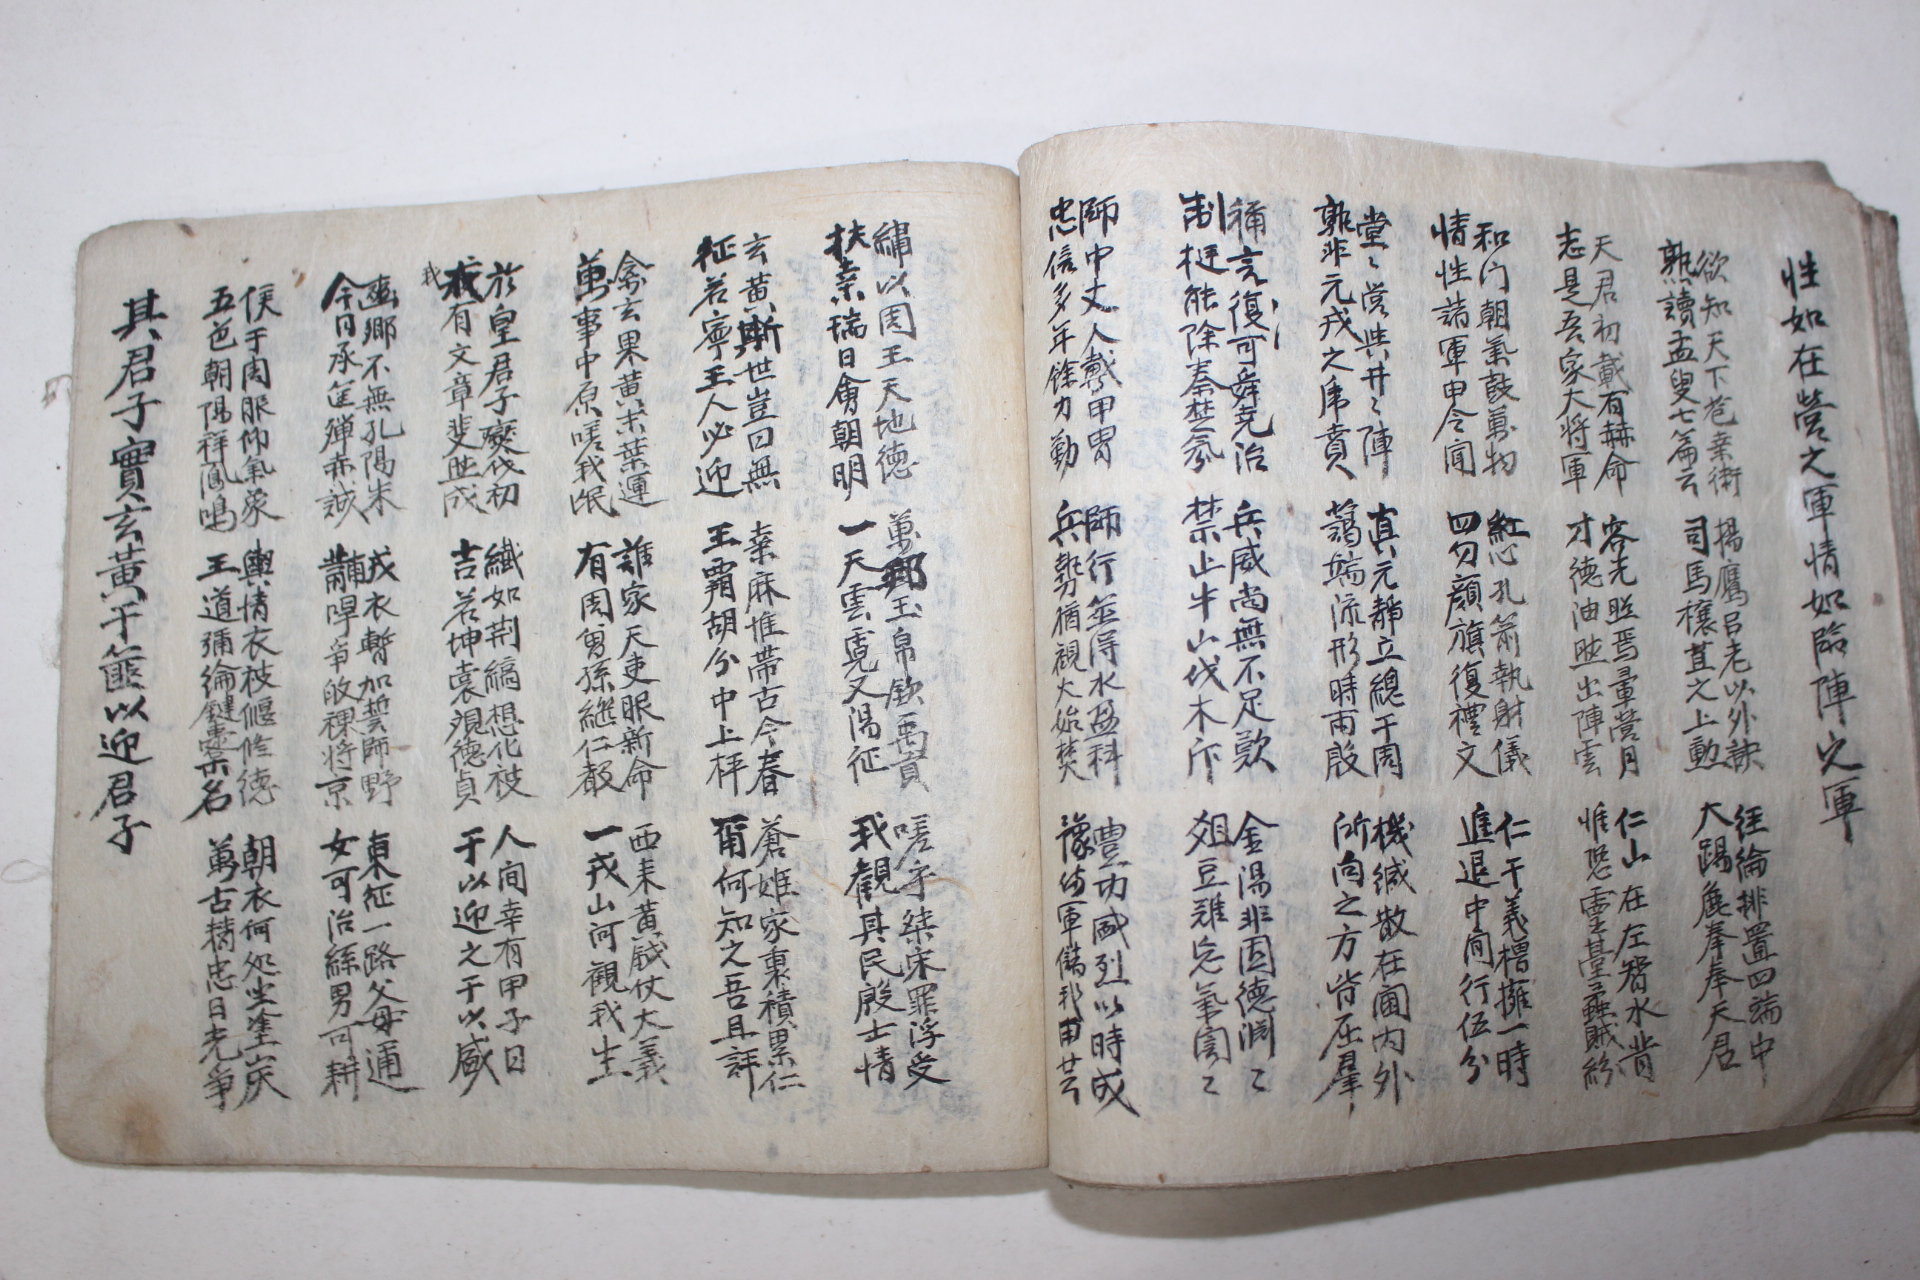 性如在營之軍情如臨陣之軍
欲知天下苞桑術
熟讀孟叟七篇云
揚鷹呂老以外訣
司馬穰苴之上勳
經綸排置四端中
大踢鹿拳奉天君
天君初載有赫命
志是吾家大將軍
容光照焉暈營月
才德油然出陣雲
仁山在左智水背
惟恐靈臺垂賊紛
和門朝氣鼓萬物
情性諸軍申令聞
紅心孔箭執射儀
四勿顔旗復禮文
仁干義櫓擁一時
進退中間行伍分
堂〻營與井〻陣
孰非元戎之虎賁
真元靜立總干周
藹端流形時雨殷
機緘散在閫內外
所向之方皆在羣
稱言復可舜堯治
制梃能除秦楚氛
兵威尚無不足歎
禁止牛山伐木斤
金湯非固德淵〻
俎豆雖兵氣誾〻
師中丈人戴甲冑
忠信多年餘力勤
師行並得水盈科
兵勢猶觀火始焚
豊功盛烈以時成
豫備軍儲
繡以周王天地德
扶桑瑞日會朝明
萬邦玉帛欽禹貢
一天雲霓又湯征
嗟乎桀宋罪浮受
我觀其民殷士情
玄黃斯世豈曰無
征若寧王人必迎
桑麻帷帶古今春
王霸胡分中上枰
蒼姬家裏積累仁
爾何知之吾且評
禽玄果黃末葉運
萬事中原嗟我氓
誰家天吏服新命
有周曾孫繼仁聲
西來黃鉞仗大義
一戎山河觀我生
於皇君子燮伐初
我有文章斐然成
纖如荊縞想化被
吉若坤裳覩德貞
人間幸有甲子日
于以迎之于以盛
幽鄉不無孔陽朱
今日承筐殫赤誠
戎衣暫加誓師野
黼冔爭 裸將京
東征一路父母邇
女可治絲男可耕
侯于周服仰氣象
五色朝陽祥鳳鳴
輿情衣被偃修德
王道彌綸鍵橐名
朝衣何処坐塗炭
萬古精忠日光爭
其君子實玄黃于篚以迎君子